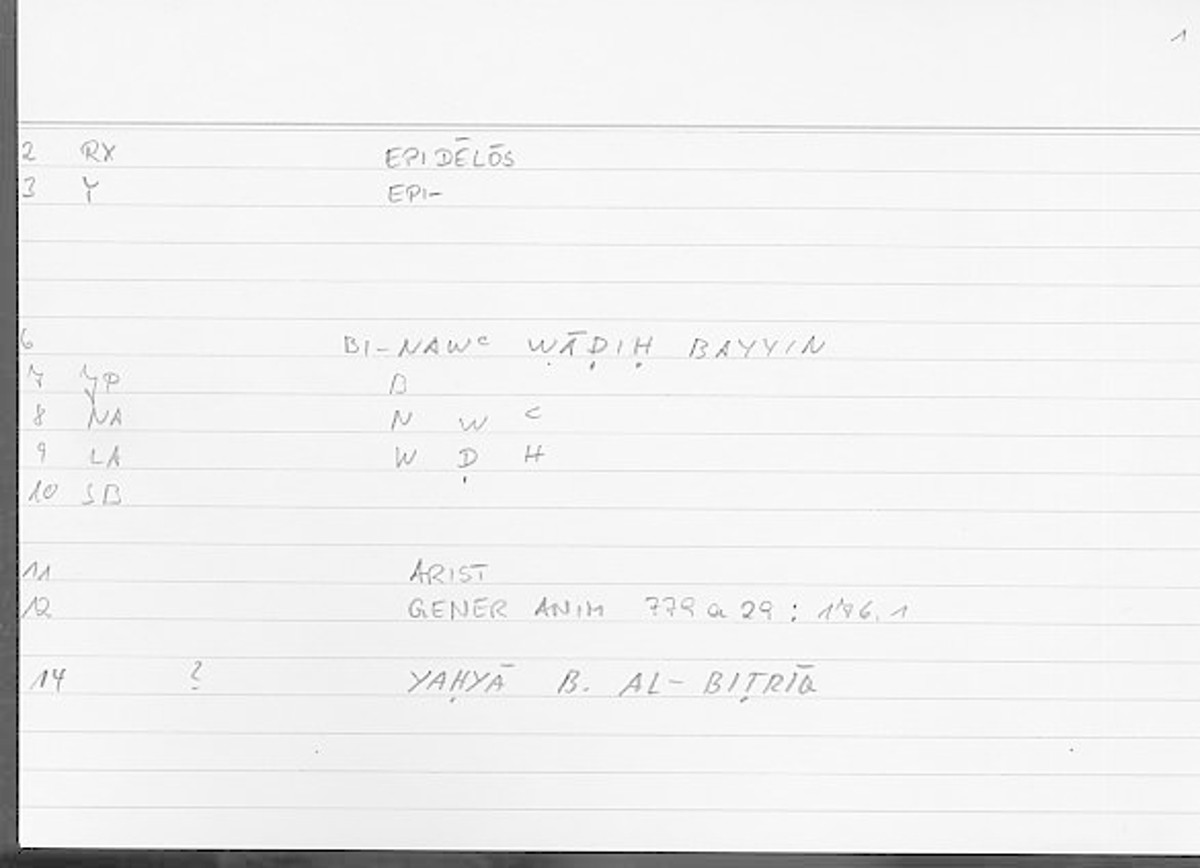 1
2 RX EPIDĒLŌS
3 Y EPI-
6 BI-NAWᶜ WĀḌIḤ BAYYIN
7 JP B
8 NA N W ᶜ
9 LA W Ḍ H
10 SB
11 ARIST
12 GENER ANIM 779 a 29 : 176.1
14 ? YAḤYĀ B. AL-BIṬRĪQ